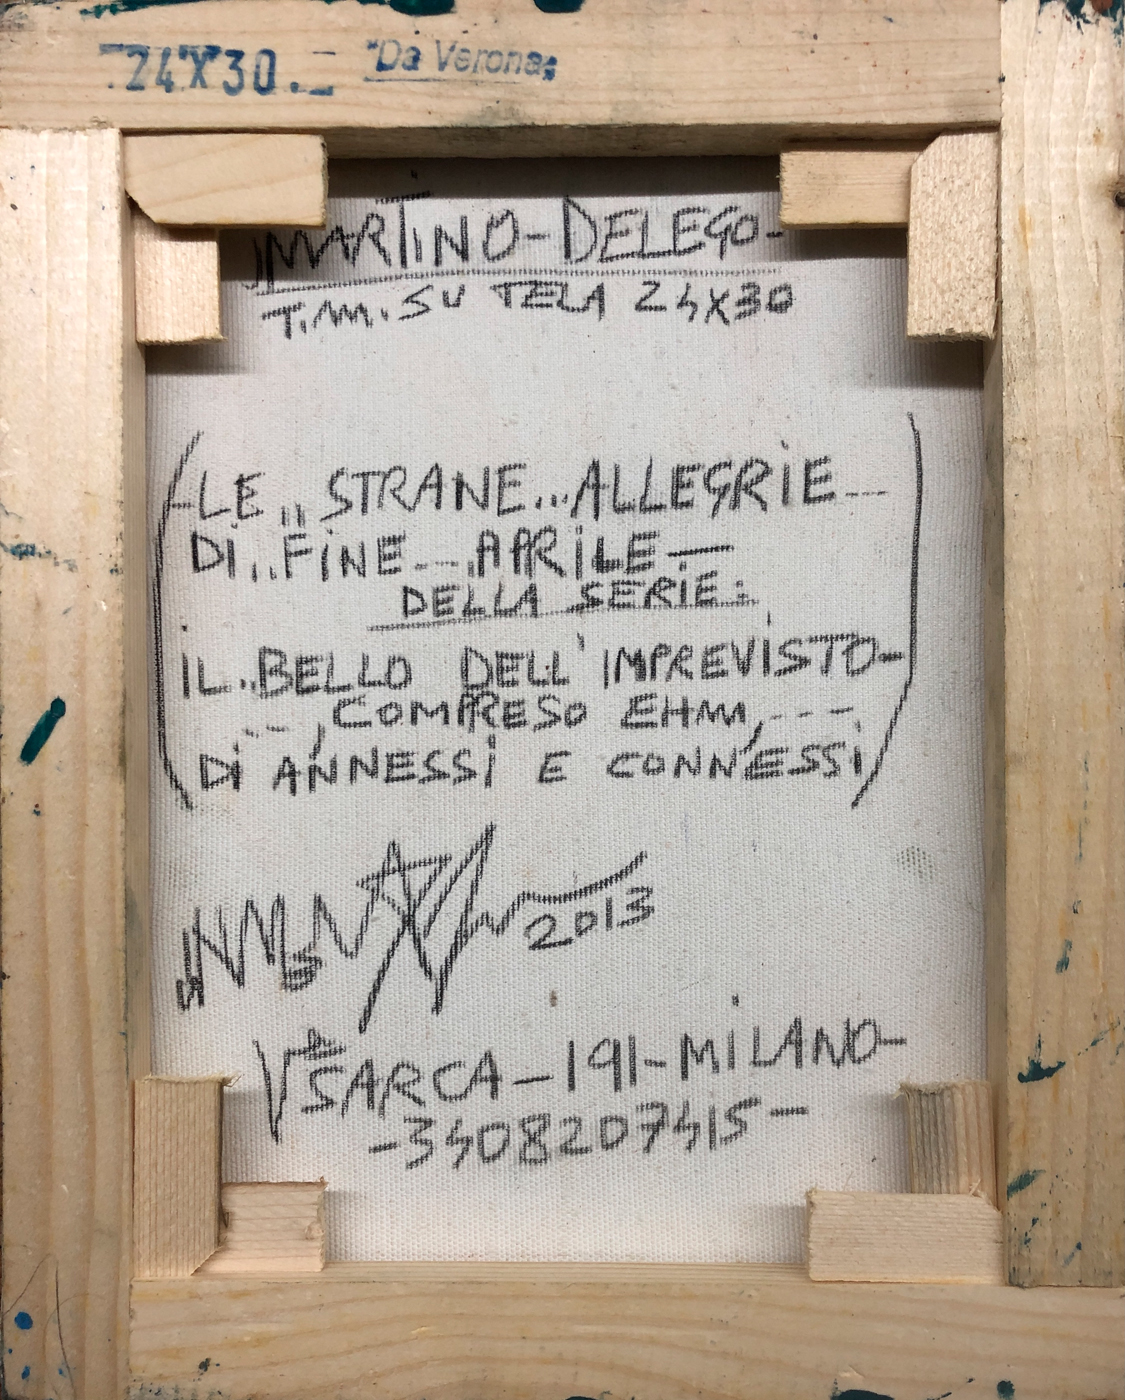 24X30.
"Da Verona"
MARTINO-DELEGO-
T.M. SU TELA 24X30
(-LE,, STRANE...ALLEGRIE---
DI,..FINE---.APRILE—
DELLA SERIE:
IL..BELLO DELL'IMPREVISTO-
---,COMPRESO EHM,---,
DI ANNESSI E CONNESSI)
2013
V SARCA-191-MILANO-
-3408207415-